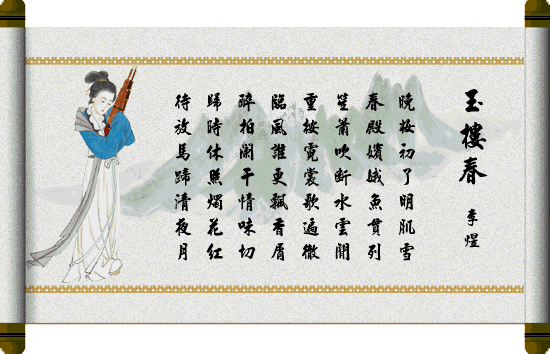 玉樓春
李煜
晚妝初了明肌雪
春殿嬪娥魚貫列
笙簫吹断水雲間
重按霓裳歌遍徹
臨風誰更飄香屑
醉拍闌干情味切
歸時休照燭花紅
待放馬蹄清夜月